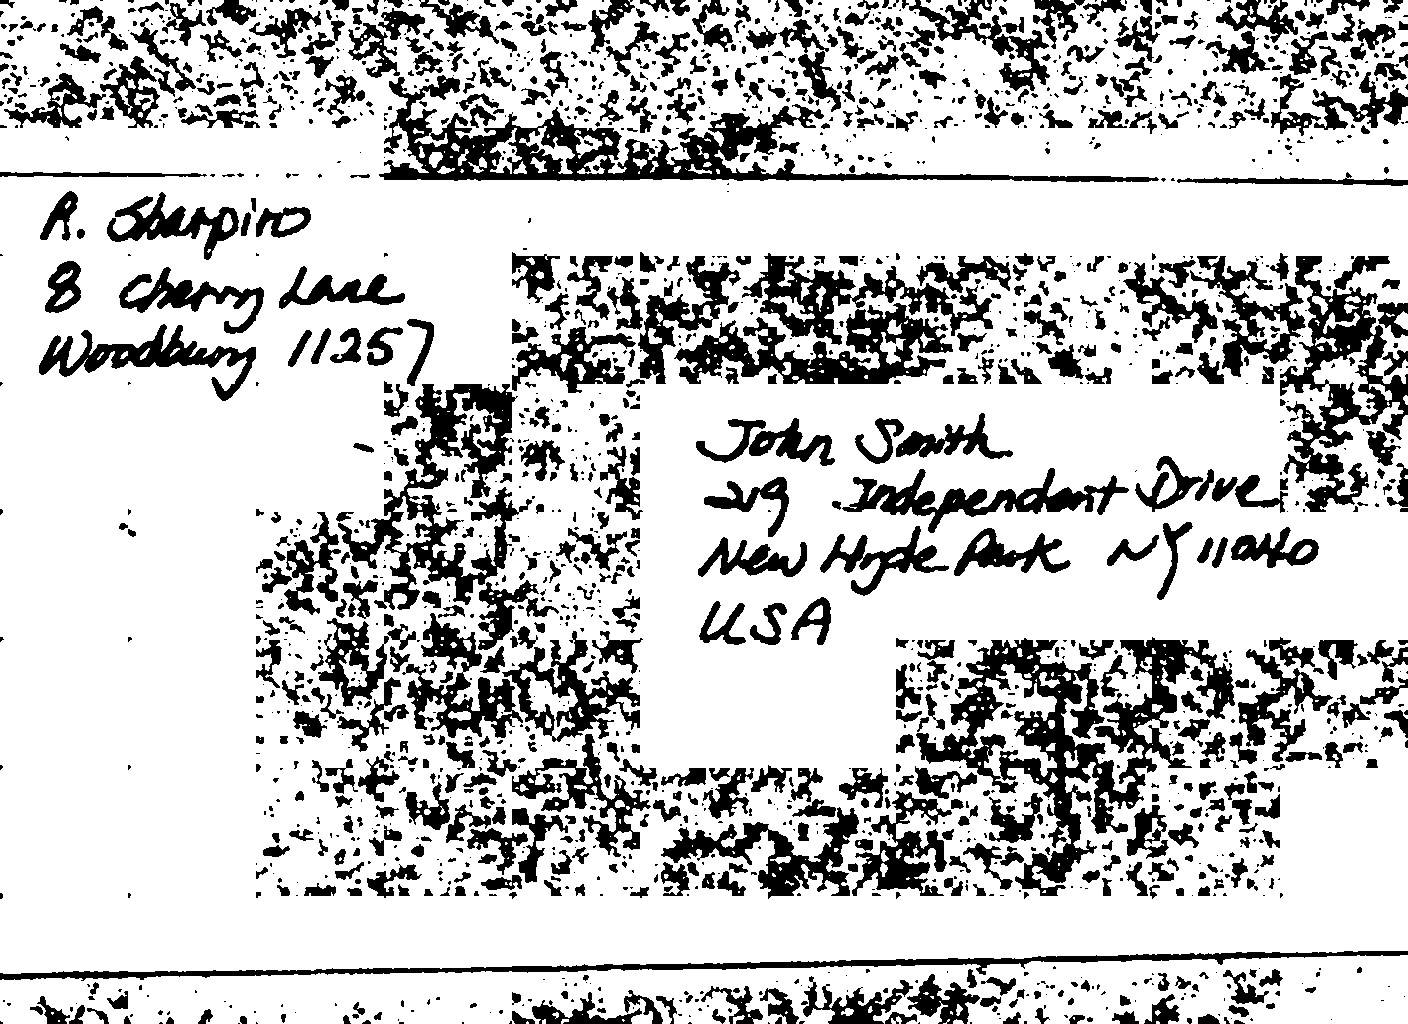 R. Sharpiro
8 Cherry Lane
Woodbury 11257
John Smith
219 Independent Drive
New Hyde Park NY 11040
USA